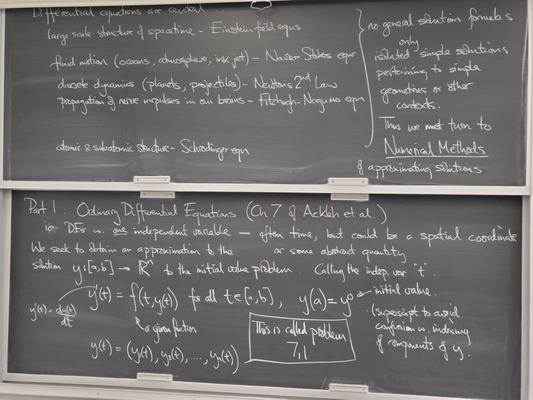 Differential equations are central
large scale structure of spacetime - Einstein field eqns
fluid motion (oceans, atmosphere, ink jet) - Navier Stokes eqns
discrete dynamics (planets, projectiles) - Newton's 2nd Law
propagation of nerve impulses in our brains - Fitzhugh-Nagumo eqn
atomic & subatomic structure - Schrodinger eqn
no general solution formulas
only
isolated simple solutions
pertaining to simple
geometries or other
contexts.
Thus we must turn to
Numerical Methods
of approximating solutions
Part 1: Ordinary Differential Equations (Ch 7 of Ackleh et al.)
ie DEs w. one independent variable - often time, but could be a spatial coordinate
or some abstract quantity
We seek to obtain an approximation to the
solution y:[a,b] → ℝⁿ to the initial value problem
Calling the indep. var "t".
y'(t) = f(t,y(t)) for all t∈[a,b], y(a) = y⁰ ← initial value.
y'(t) = dy(t)/dt
a given function
(superscript to avoid
confusion w. indexing
of components of y.
This is called problem
7.1
y(t) = (y₁(t), y₂(t), ...., yₙ(t))